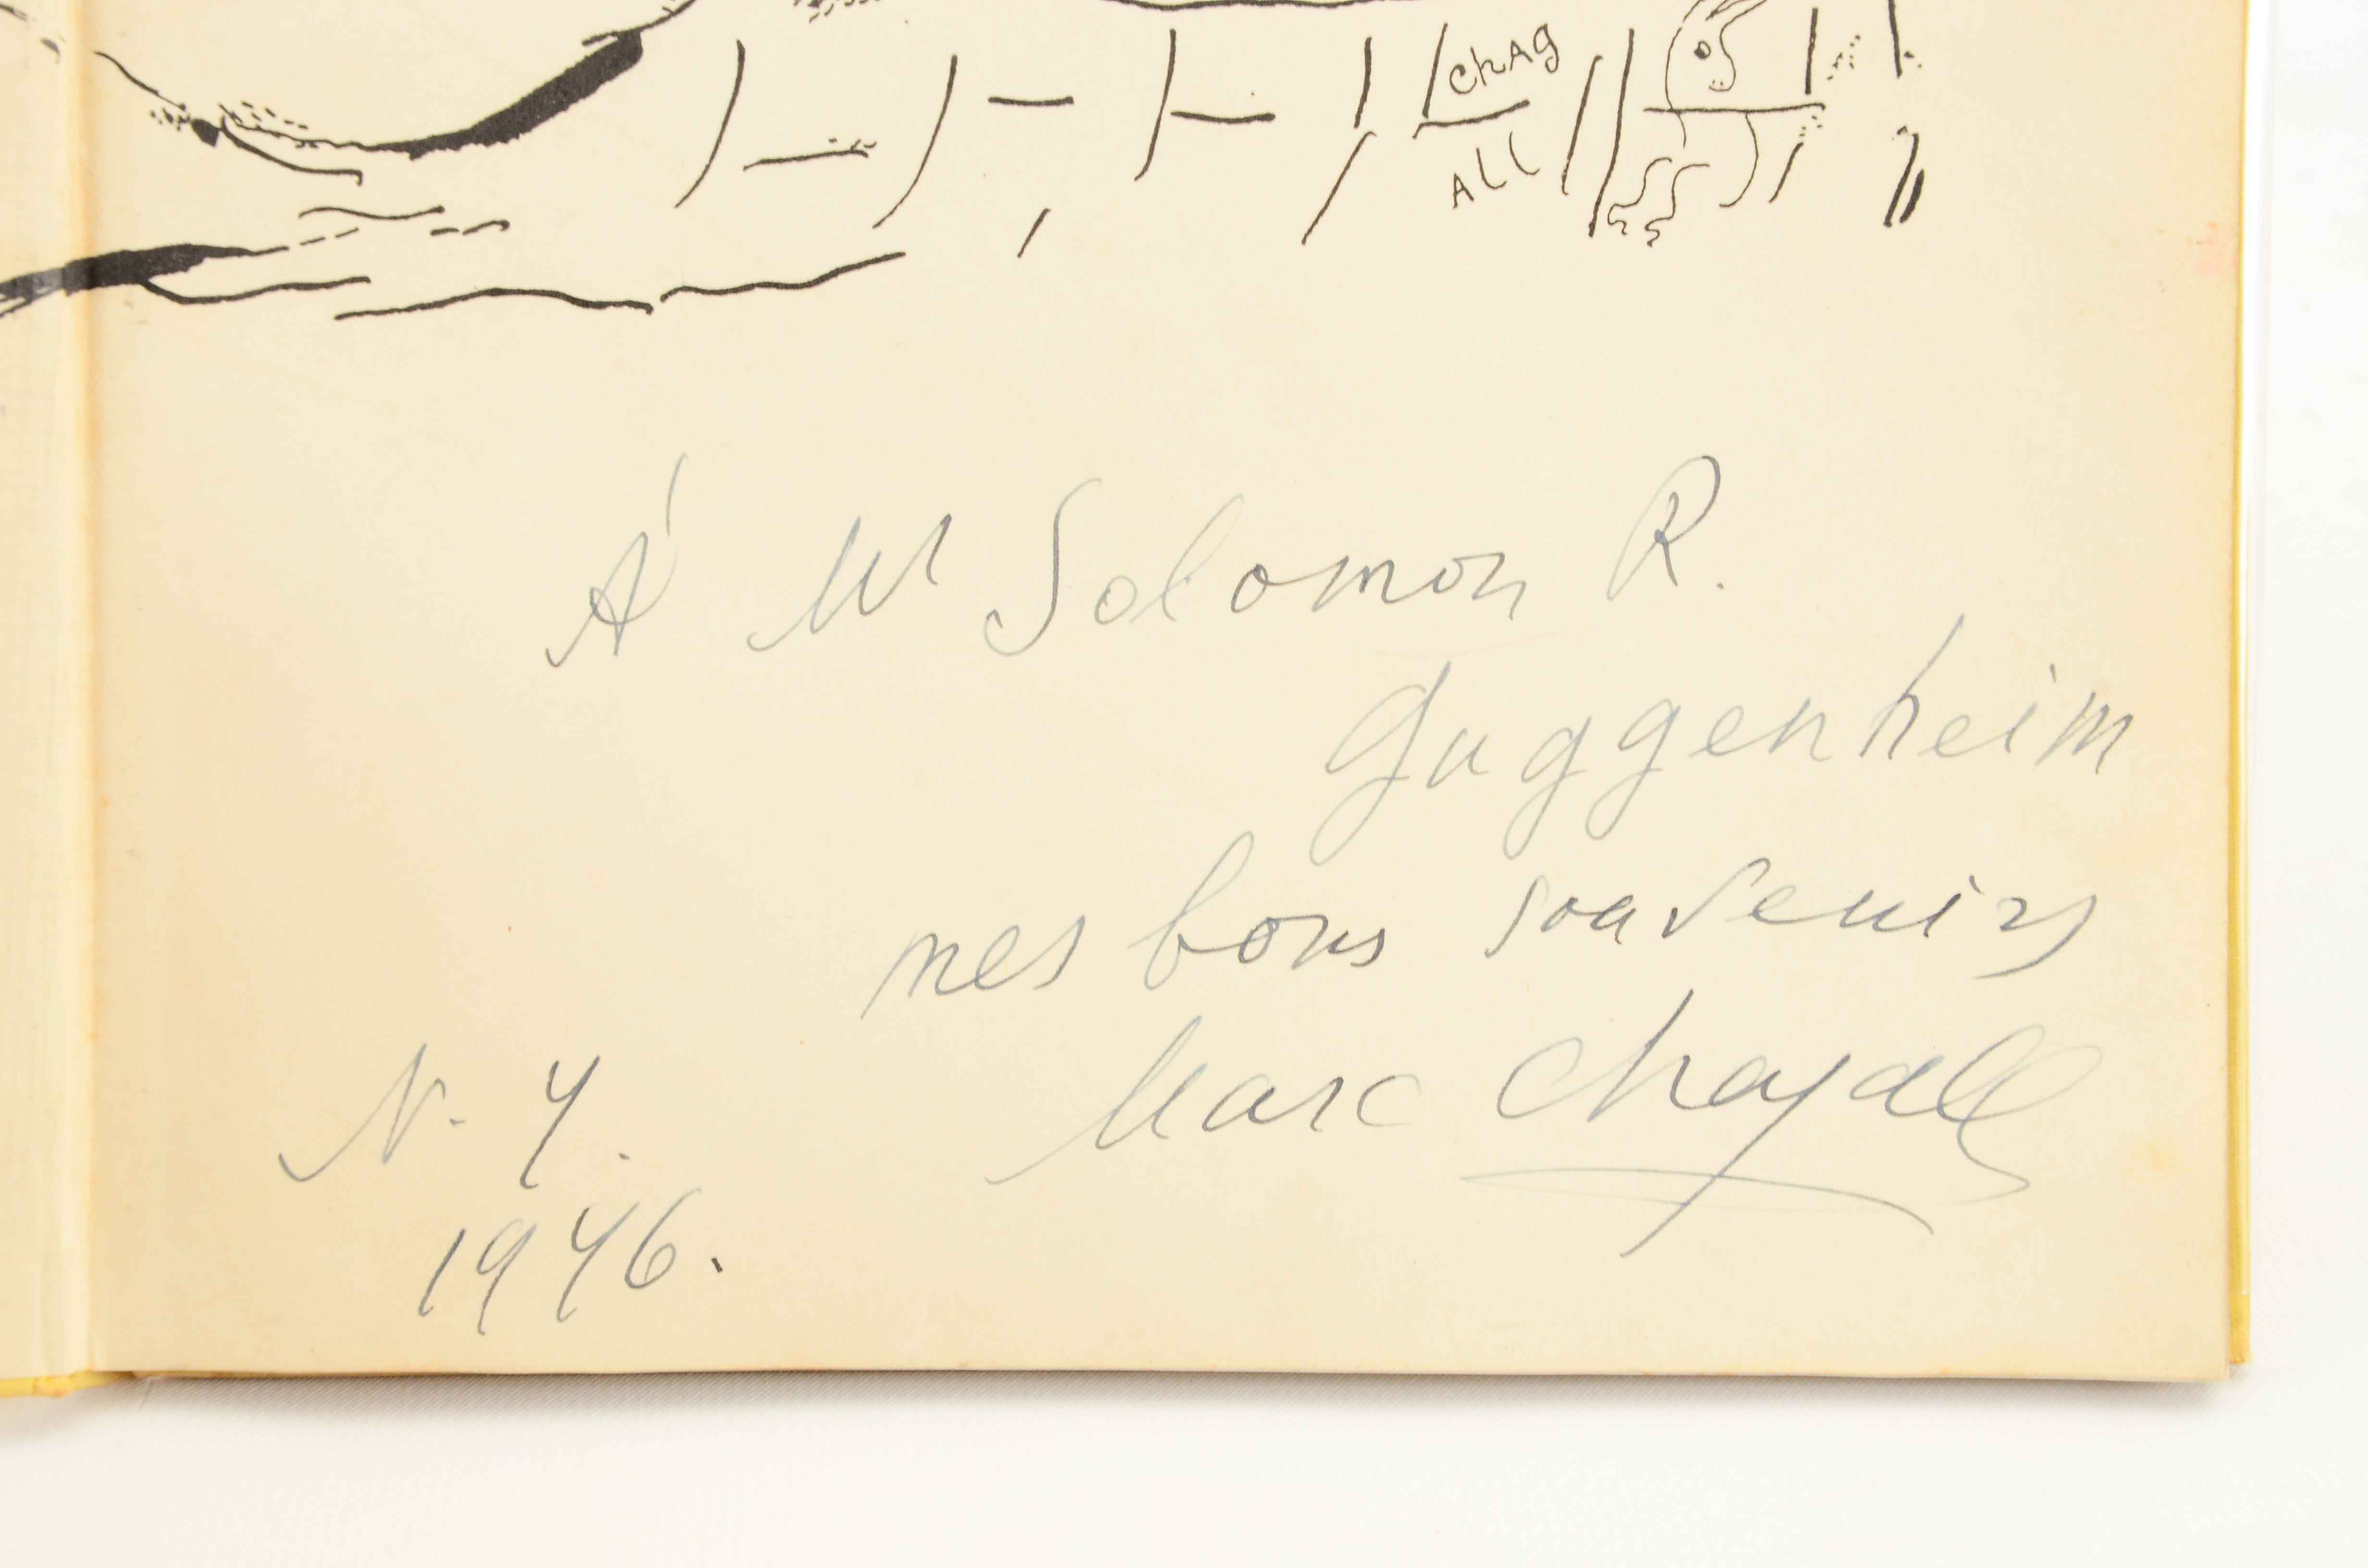 chag
All
À Mr Solomon R.
Guggenheim
mes bons souvenirs
Marc Chagall
N. Y.
1946.